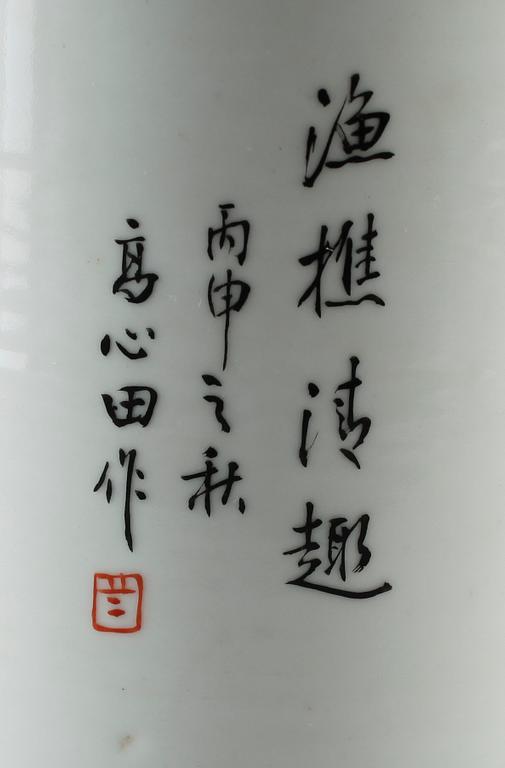 渔樵清趣
丙申之秋
高心田作